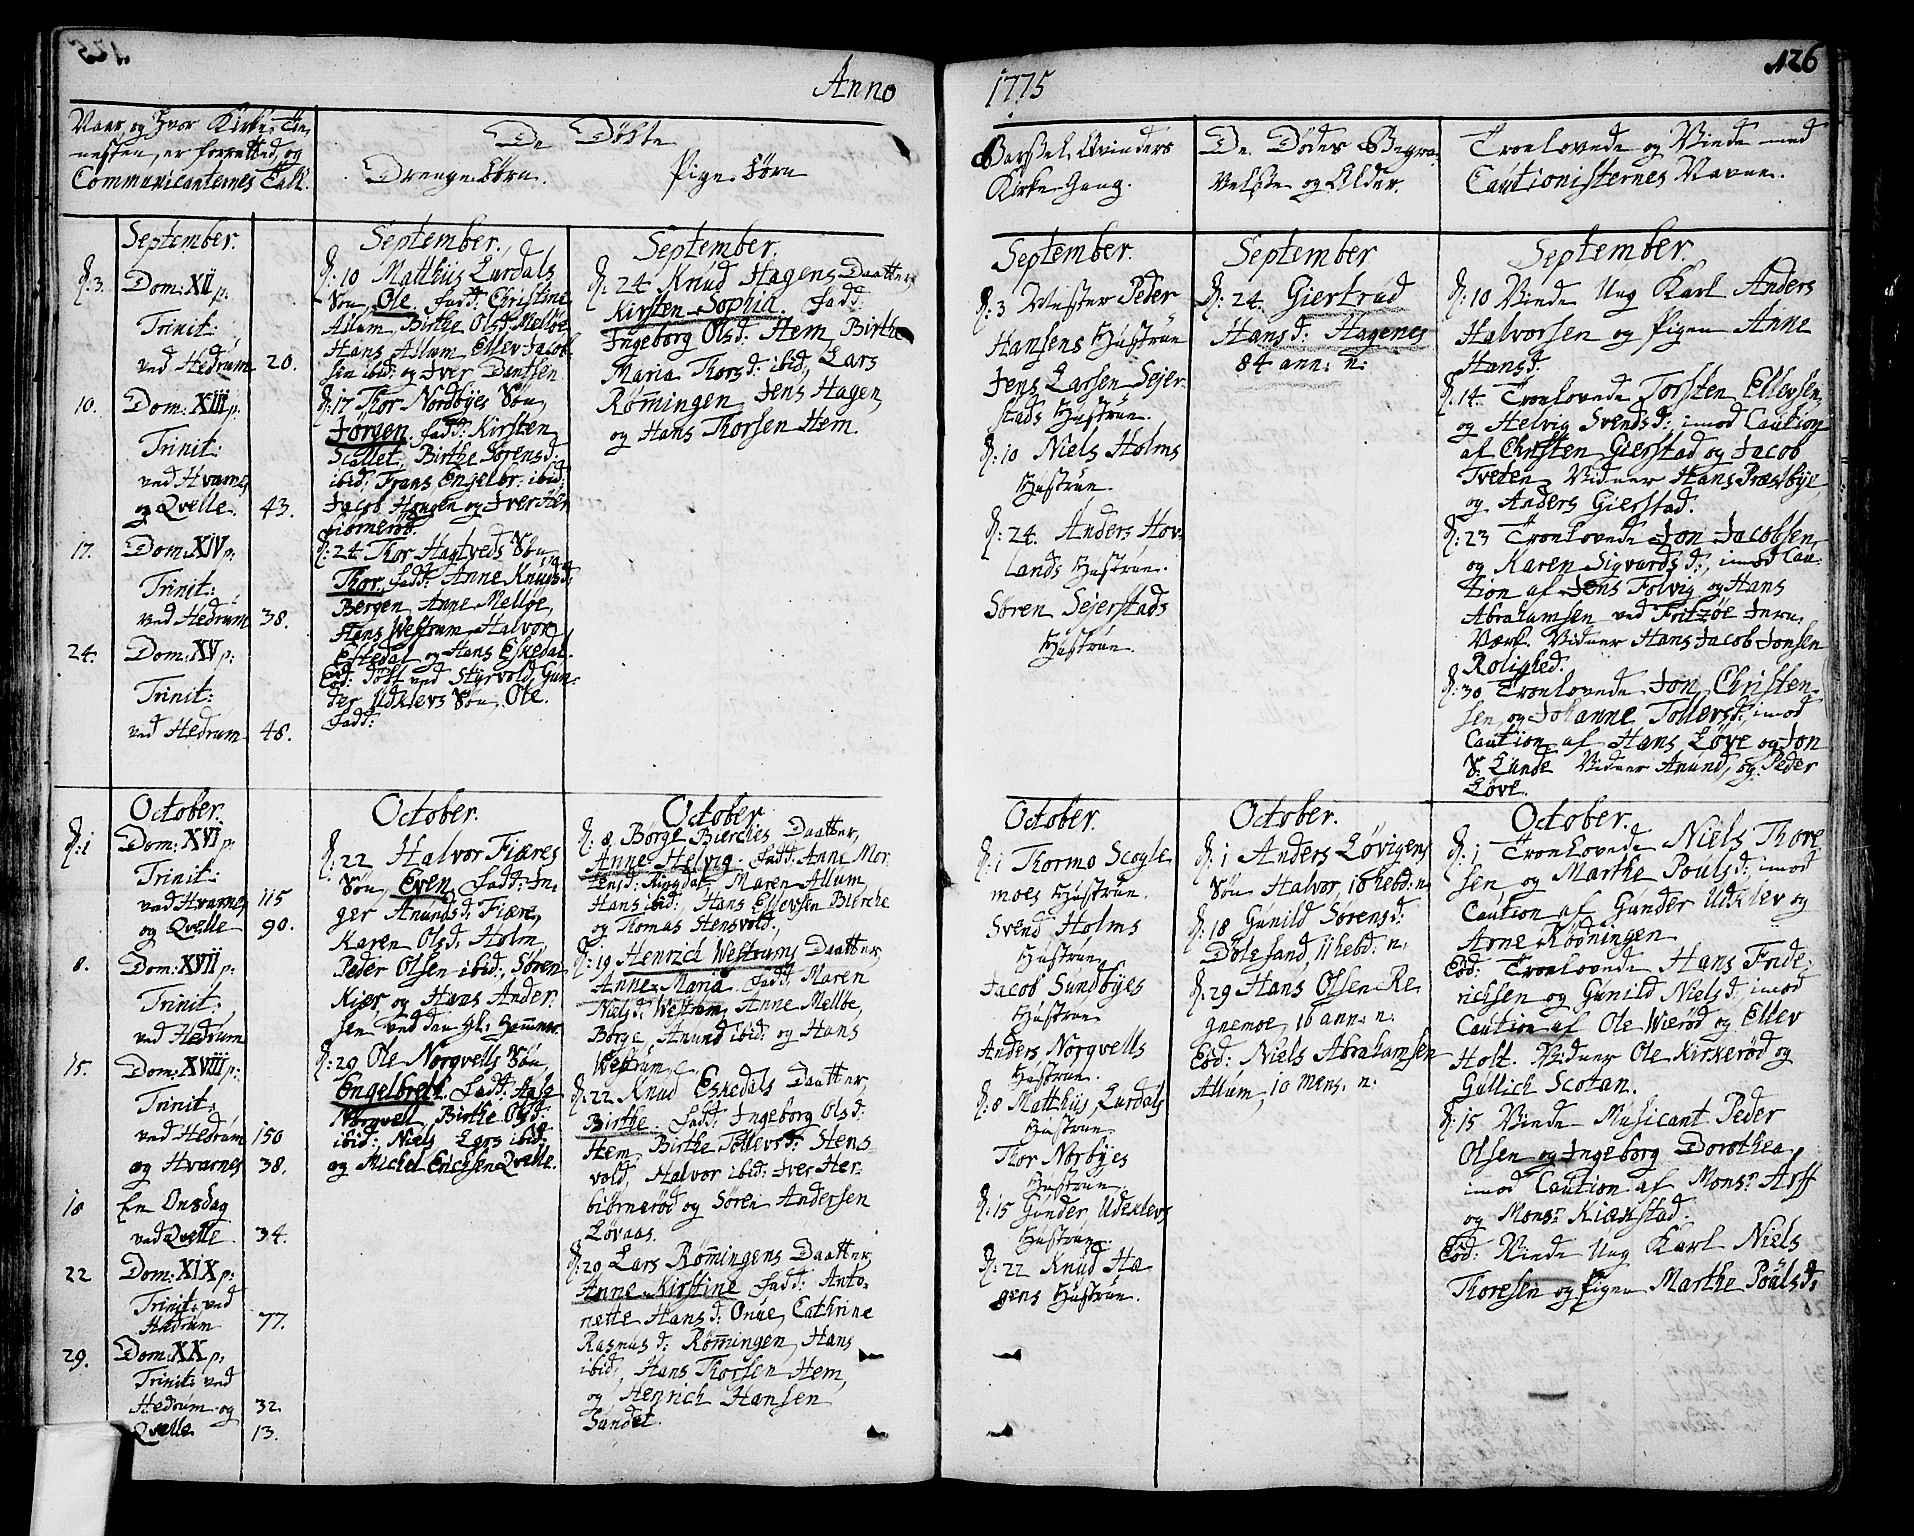 125
Anno
Naar og hvor Kirke-Tie-
nesten, er forrettet, og
Communicanternes Tall.
De Döbte
Drenge Börn.
Pige Börn
September.
d: 3. Dom: XII p:
Trinit:
ved Hedrum 20.
10. Dom: XIII p:
Trinit:
ved Hvarnes
og Qvelle. 43.
17. Dom: XIV p:
Trinit:
ved Hedrum 38.
24. Dom: XV p:
Trinit:
ved Hedrum 48.
September.
d: 10 Matthiis Lurdals
Søn Ole. Fadd: Christine
Allum, Birthe Olsd: Melløe
Hans Allum Ellev Jacob
sen ibid: og Iver Dantsen.
d: 17 Thor Nordbÿes Søn
Jørgen. Fadd: Kirsten
Scallet, Birthe Sørensd:
ibid: Frans Engelbr: ibid:
Jacob Haugen og Iver Her
biörneröd.
d: 24 Thor Hagtveds Søn
Thor. Fadd: Anne Knudsd:
Bergen, Anne Melløe,
Hans Westrum, Halvor
Eskedal og Hans Eskedal.
Eod: Døbt ved Styrvold Gun-
der Udklevs Søn, Ole.
Fadd:
September.
d: 24 Knud Hagens Daatter
Kirsten Sophia. Fadd:
Ingeborg Olsd: Hem, Birthe
Maria Thorsd: ibid:, Lars
Rømingen, Jens Hagen,
og Hans Thorsen Hem.
October.
d: 1 Dom: XVI p:
Trinit:
ved Hvarnes 115
og Qvelle 90.
8. Dom: XVII p:
Trinit:
ved Hedrum
15. Dom: XVIII p:
Trinit:
ved Hedrum 150
og Hvarnes 38.
18 En Onsdag
ved Qvelle 34.
22 Dom: XIX p:
Trinit: ved
Hedrum 77.
29. Dom: XX p:
Trinit: ved
Hedrum og 32.
Qvelle 13.
October.
d: 22 Halvor Fiæres
Søn, Even. Fadd: In-
ger Anundsd: Fiære,
Karen Olsd: Holm,
Peder Olsen ibid:, Søren
Kiær og Hans Ander-
sen ved den gl: Hammer.
d: 29 Ole Norqvells Søn,
Engelbrett. Fadd:
Norqvell, Birthe Olsd:
ibid: Niels Lars ibid:
og Michel Erichsen Qvelle.
October
d: 8. Børge Bierches Daatter,
Anne Helvig. Fadd: Anne Mor
tensd: Ringdal, Maren Allum,
Hans ibid:, Hans Ellevsen Bierche
og Thomas Stensvold.
d: 19 Henrich Westrums Daatter,
Anne Maria. Fadd: Maren
Nielsd: Westrum, Anne Melbe,
Börge, Anund ibid: og Hans
Westrum.
d: 22 Knud Eskedals Daatter
Birthe. Fadd: Ingeborg Olsd:
Hem, Birthe Tollevsd: Stens
vold, Halvor ibid: Iver Her-
biörneröd og Søren Andersen
Løvaas.
d: 29 Lars Rømingens Daatter,
Anne Kirstine. Fadd: Anto-
nette Hansd: Onue, Cathrine
Rasmusd: Rømingen, Hans
ibid:, Hans Thorsen Hem,
og Henrich Hansen
Sandet.
126
1775
Barsel Qvinders
Kirke-Gang.
De Dödes Begra-
velse og Alder.
Troelovede og Viede med
Cautionisternes Navne.
September.
d: 3 Mester Peder
Hansens Hustrue
Jens Larsen Sejer-
stads Hustrue.
d: 10 Niels Holms
Hustrue
d: 24. Anders Hov-
lands Hustrue.
Søren Sejerstads
Hustrue.
September
d: 24. Giertrud
Hansd: Hagenes
84 ann: n:
September.
d: 10 Viede Ung Karl Anders
Halvorsen og Pigen Anne
Hansd:
d: 14. Troelovede Torsten Ellevsen
og Helvig Svendsd: imod Caution
af Christen Gierstad og Jacob
Tveten. Vidner Hans Præstbÿe
og Anders Gierstad.
d: 23 Troelovede Jon Jacobsen,
og Karen Sigvardsd:, imod Cau-
tion af Jens Folvig og Hans
Abrahamsen ved Fritzøe Jern-
Værk. Vidner Hans Jacob Jonsen
Rolighed.
d: 30 Troelovede Jon Christen-
sen, og Johanne Tollevsd: imod
Caution af Hans Løve og Jon
S. Lunde Vidner Anund, og Peder
Løve.
October.
d: 1 Thormo Scoyle
moes Hustrue.
Svend Holms
Hustrue
Jacob Sundbÿes
Hustrue
Anders Norqvells
Hustrue.
d: 8 Matthiis Lurdals
Hustrue
Thor Norbÿes
Hustrue.
d: 15 Gunder Udeklevs
Hustrue.
d: 22 Knud Ha
gens Hustrue.
October.
d: 1 Anders Løvigens
Søn Halvor, 10 hebd: n.
d: 18 Gunild Sørensd:
Dølesand, 11 hebd: n.
d: 29 Hans Olsen Re
gnemoe, 16 ann: n:
Eod: Niels Abrahamsen
Allum, 10 mens. n:
October.
d: 1 Troelovede Niels Thore
sen og Marthe Poulsd: imod
Caution af Gunder Udklev og
Arne Rødningen
Eod: Troelovede Hans Fride-
richsen og Gunild Nielsd: imod
Caution af Ole Wierød og Ellev
Holt. Vidner Ole Kirkerød og
Gullich Scotan.
d: 15 Viede Musicant Peder
Olsen og Ingeborg Dorothea
imod Caution af Monsr Arff
og Monsr Kiærstad.
Eod: Viede Ung Karl Niels
Thoresen og Pigen Marthe Pouls d: